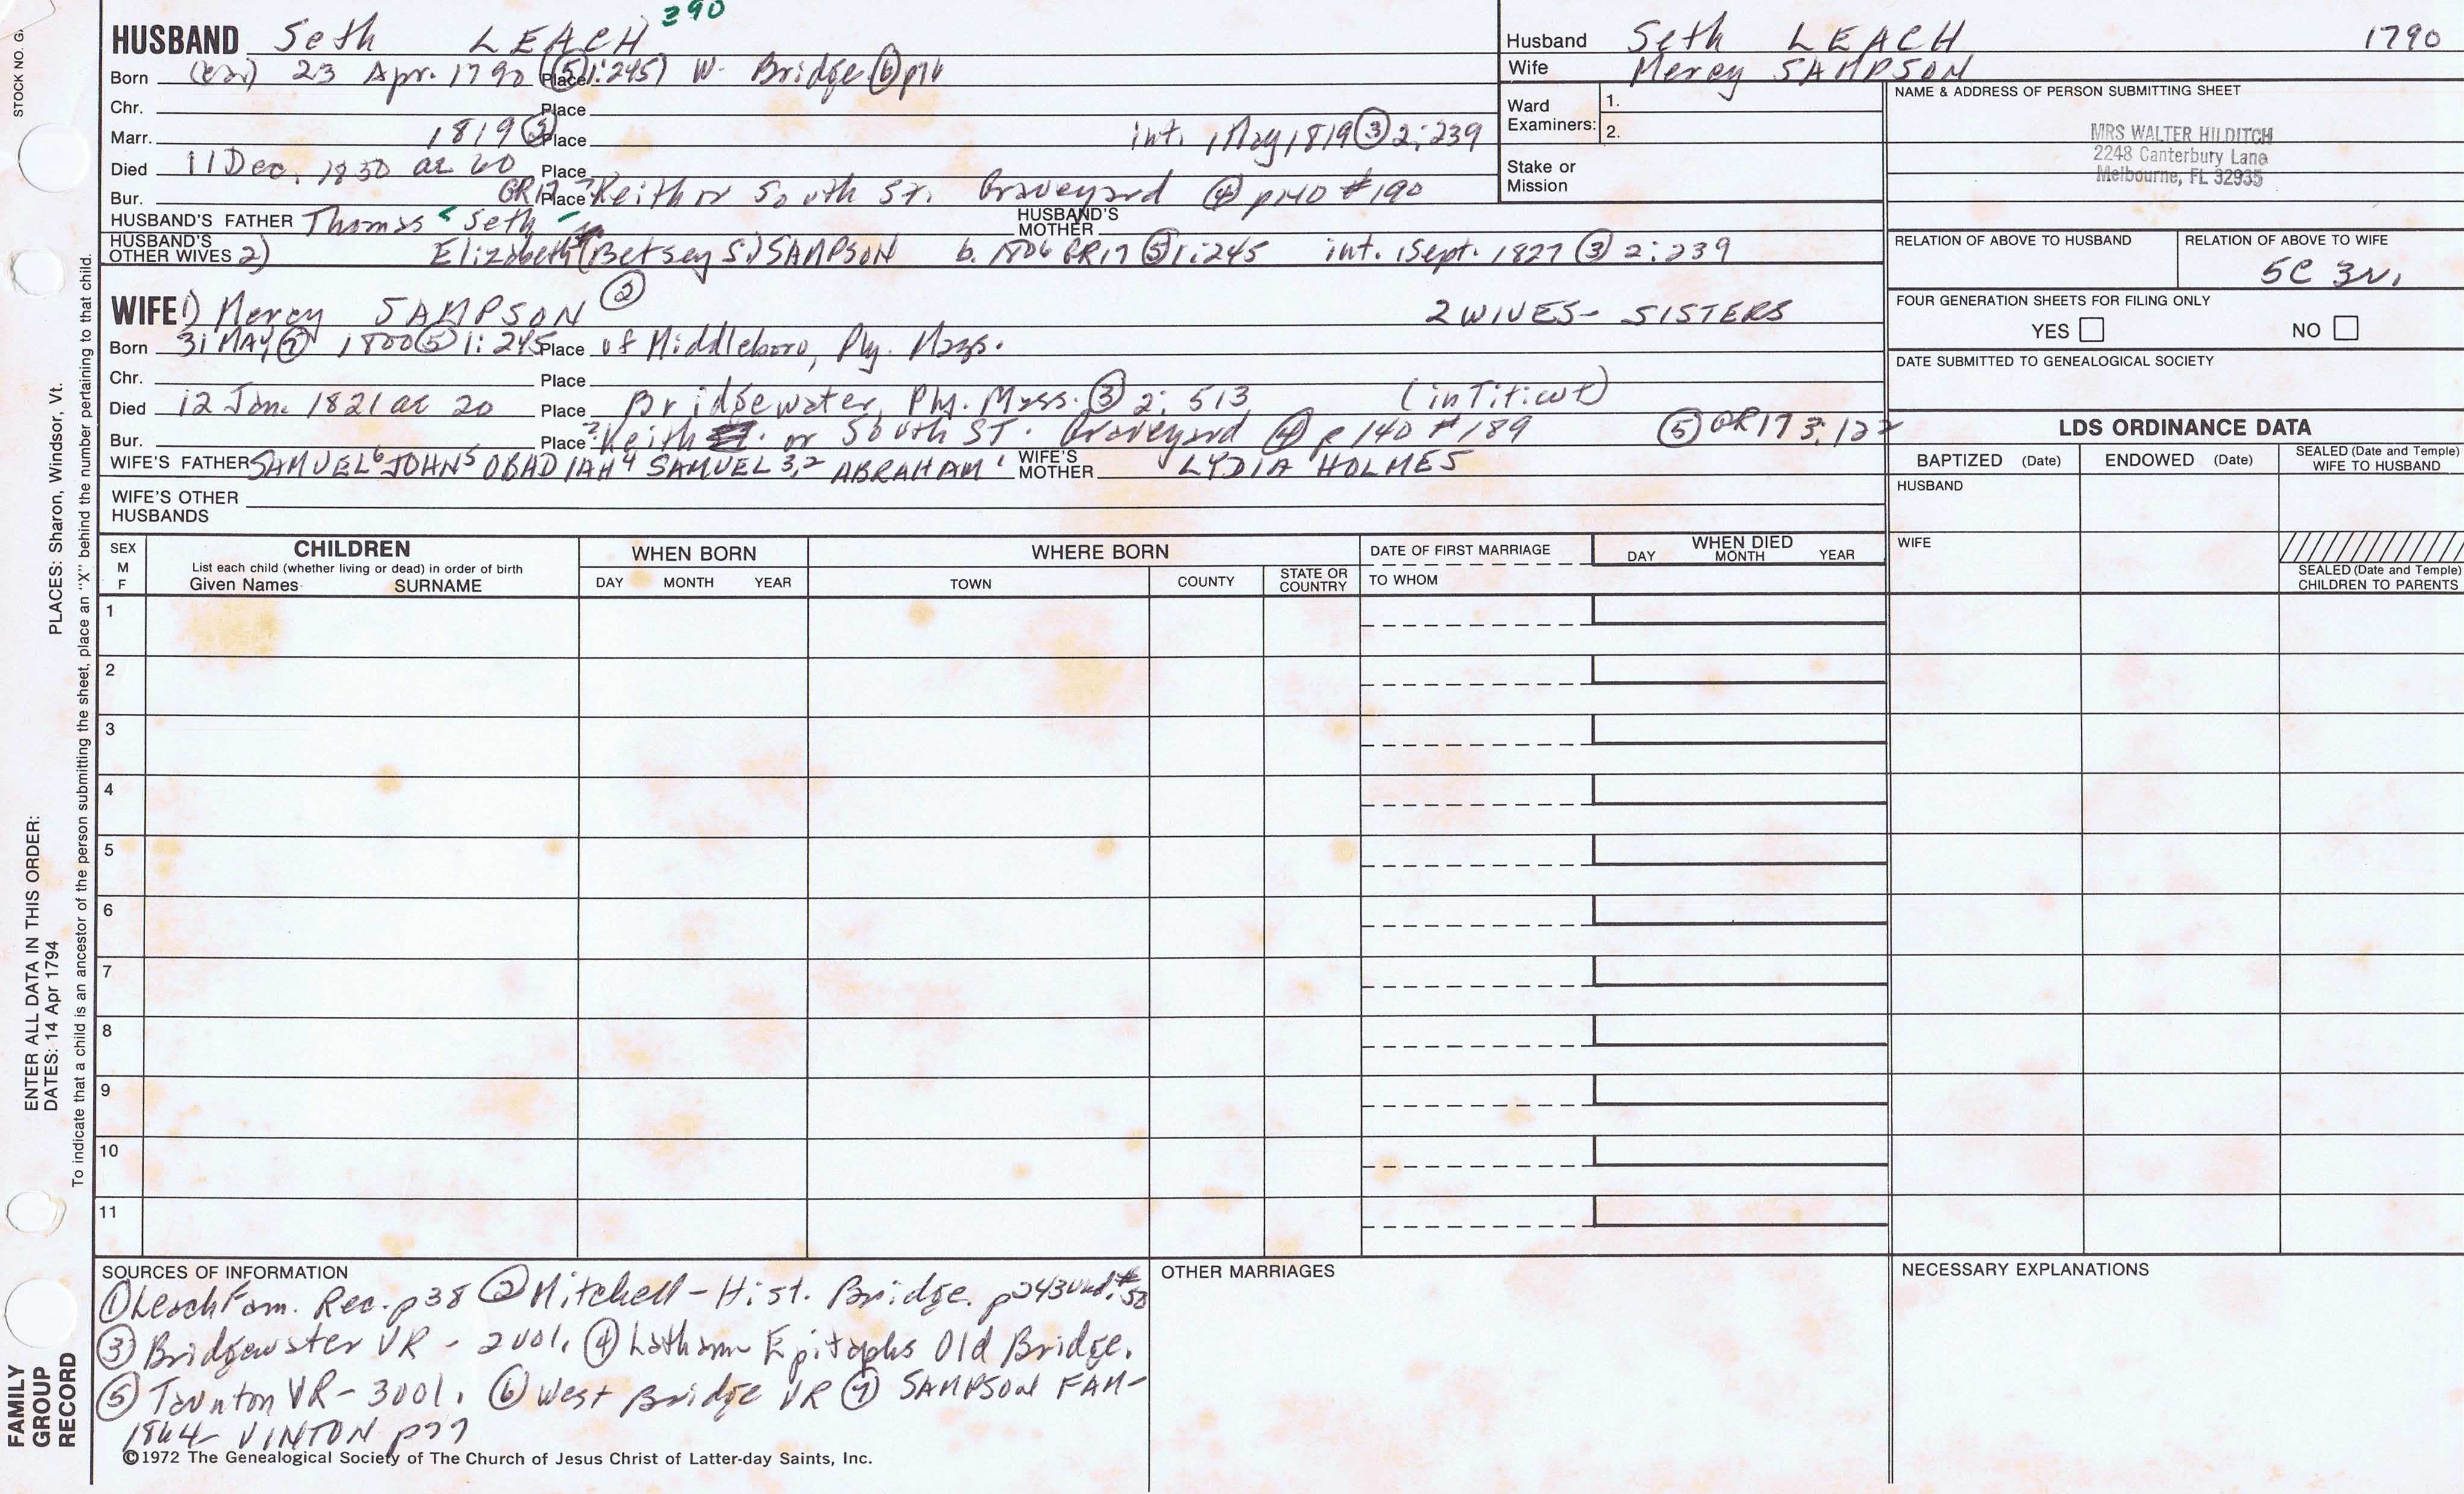 STOCK NO. G.
PLACES: Sharon, Windsor, Vt.
ENTER ALL DATA IN THIS ORDER:
DATES: 14 Apr 1794
To indicate that a child is an ancestor of the person submitting the sheet, place an "X" behind the number pertaining to that child.
FAMILY GROUP RECORD
HUSBAND Seth LEACH 390
Born 23 Apr. 1790 Place (⑤1:245) W. Bridge ⑥ p76
Chr. Place
Marr. 1819 ② Place int. 1 May 1819 ③ 2:239
Died 11 Dec. 1850 ae 60 Place
Bur. GR17 Place ? Keith or South St. Graveyard ④ p140 #190
HUSBAND'S FATHER Thomas Seth HUSBAND'S MOTHER
HUSBAND'S OTHER WIVES 2) Elizabeth (Betsey S.) SAMPSON b. 1806 GR17 ⑤ 1:245 int. 1 Sept. 1827 ③ 2:239
WIFE 1) Mercy SAMPSON ② 2 WIVES - SISTERS
Born 31 MAY ⑦ 1800 ⑤ 1:245 Place of Middleboro, Ply. Mass.
Chr. Place
Died 12 Jan. 1821 ae 20 Place Bridgewater, Ply. Mass. ③ 2:513 (in Titicut)
Bur. Place ? Keith or South ST. Graveyard ④ p140 #189 ⑤ GR17 3:122
WIFE'S FATHER SAMUEL⁶ JOHN⁵ OBADIAH⁴ SAMUEL³,² ABRAHAM¹ WIFE'S MOTHER LYDIA HOLMES
WIFE'S OTHER HUSBANDS
Husband Seth LEACH 1790
Wife Mercy SAMPSON
Ward Examiners: 1.
2.
Stake or Mission
NAME & ADDRESS OF PERSON SUBMITTING SHEET
MRS WALTER HILDITCH
2248 Canterbury Lane
Melbourne, FL 32935
RELATION OF ABOVE TO HUSBAND RELATION OF ABOVE TO WIFE
5C 3N.
FOUR GENERATION SHEETS FOR FILING ONLY
YES NO
DATE SUBMITTED TO GENEALOGICAL SOCIETY
LDS ORDINANCE DATA
BAPTIZED (Date) ENDOWED (Date) SEALED (Date and Temple) WIFE TO HUSBAND
HUSBAND
WIFE
SEALED (Date and Temple) CHILDREN TO PARENTS
SEX M F
CHILDREN
List each child (whether living or dead) in order of birth
Given Names SURNAME
WHEN BORN
DAY MONTH YEAR
WHERE BORN
TOWN COUNTY STATE OR COUNTRY
DATE OF FIRST MARRIAGE
TO WHOM
WHEN DIED
DAY MONTH YEAR
1
2
3
4
5
6
7
8
9
10
11
SOURCES OF INFORMATION
① Leach Fam. Rec. p38 ② Mitchell - Hist. Bridge. p243
③ Bridgewater VR - 2 vol. ④ Latham Epitaphs Old Bridge.
⑤ Taunton VR - 3 vol. ⑥ West Bridge VR ⑦ SAMPSON FAM -
1864 VINTON p77
OTHER MARRIAGES
NECESSARY EXPLANATIONS
©1972 The Genealogical Society of The Church of Jesus Christ of Latter-day Saints, Inc.